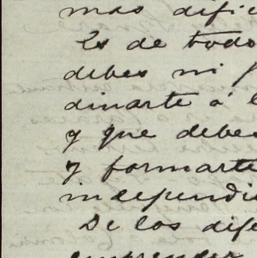 mas difi
Es de todo
debes ni
dinarte á
y que debes
y formarte
independi
De los dife
emprender